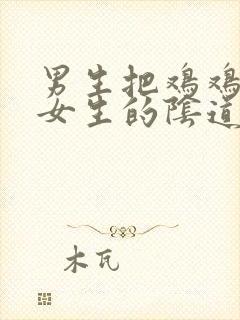 男生把鸡鸡
女生的陰道
木瓦